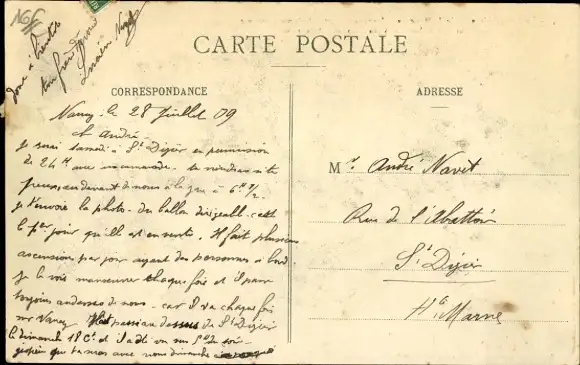 donc à bientôt
ton frère
Lucien Navet
CARTE POSTALE
CORRESPONDANCE
Nancy le 28 Juillet 09
André
Je serai samedi à St Dizier en permission
de 24 H avec un camarade. tu viendras si tu
peux, au devant de nous à la gare à 6H 1/2
Je t'envoie la photo du ballon dirigeable. c'est
le 1er jour qu'elle est en vente. Il fait plusieurs
ascensions par jour ayant des personnes à bord
Je le vois manœuvrer chaque fois et il passe
toujours au dessus de nous. car il va chaque fois
sur Nancy. Il est passé au dessus de St Dizier
le dimanche 18 Ct. et
que tu
avec nous dimanche
ADRESSE
Mr. André Navet
Rue de l'Abattoir
St Dizier
Hte Marne